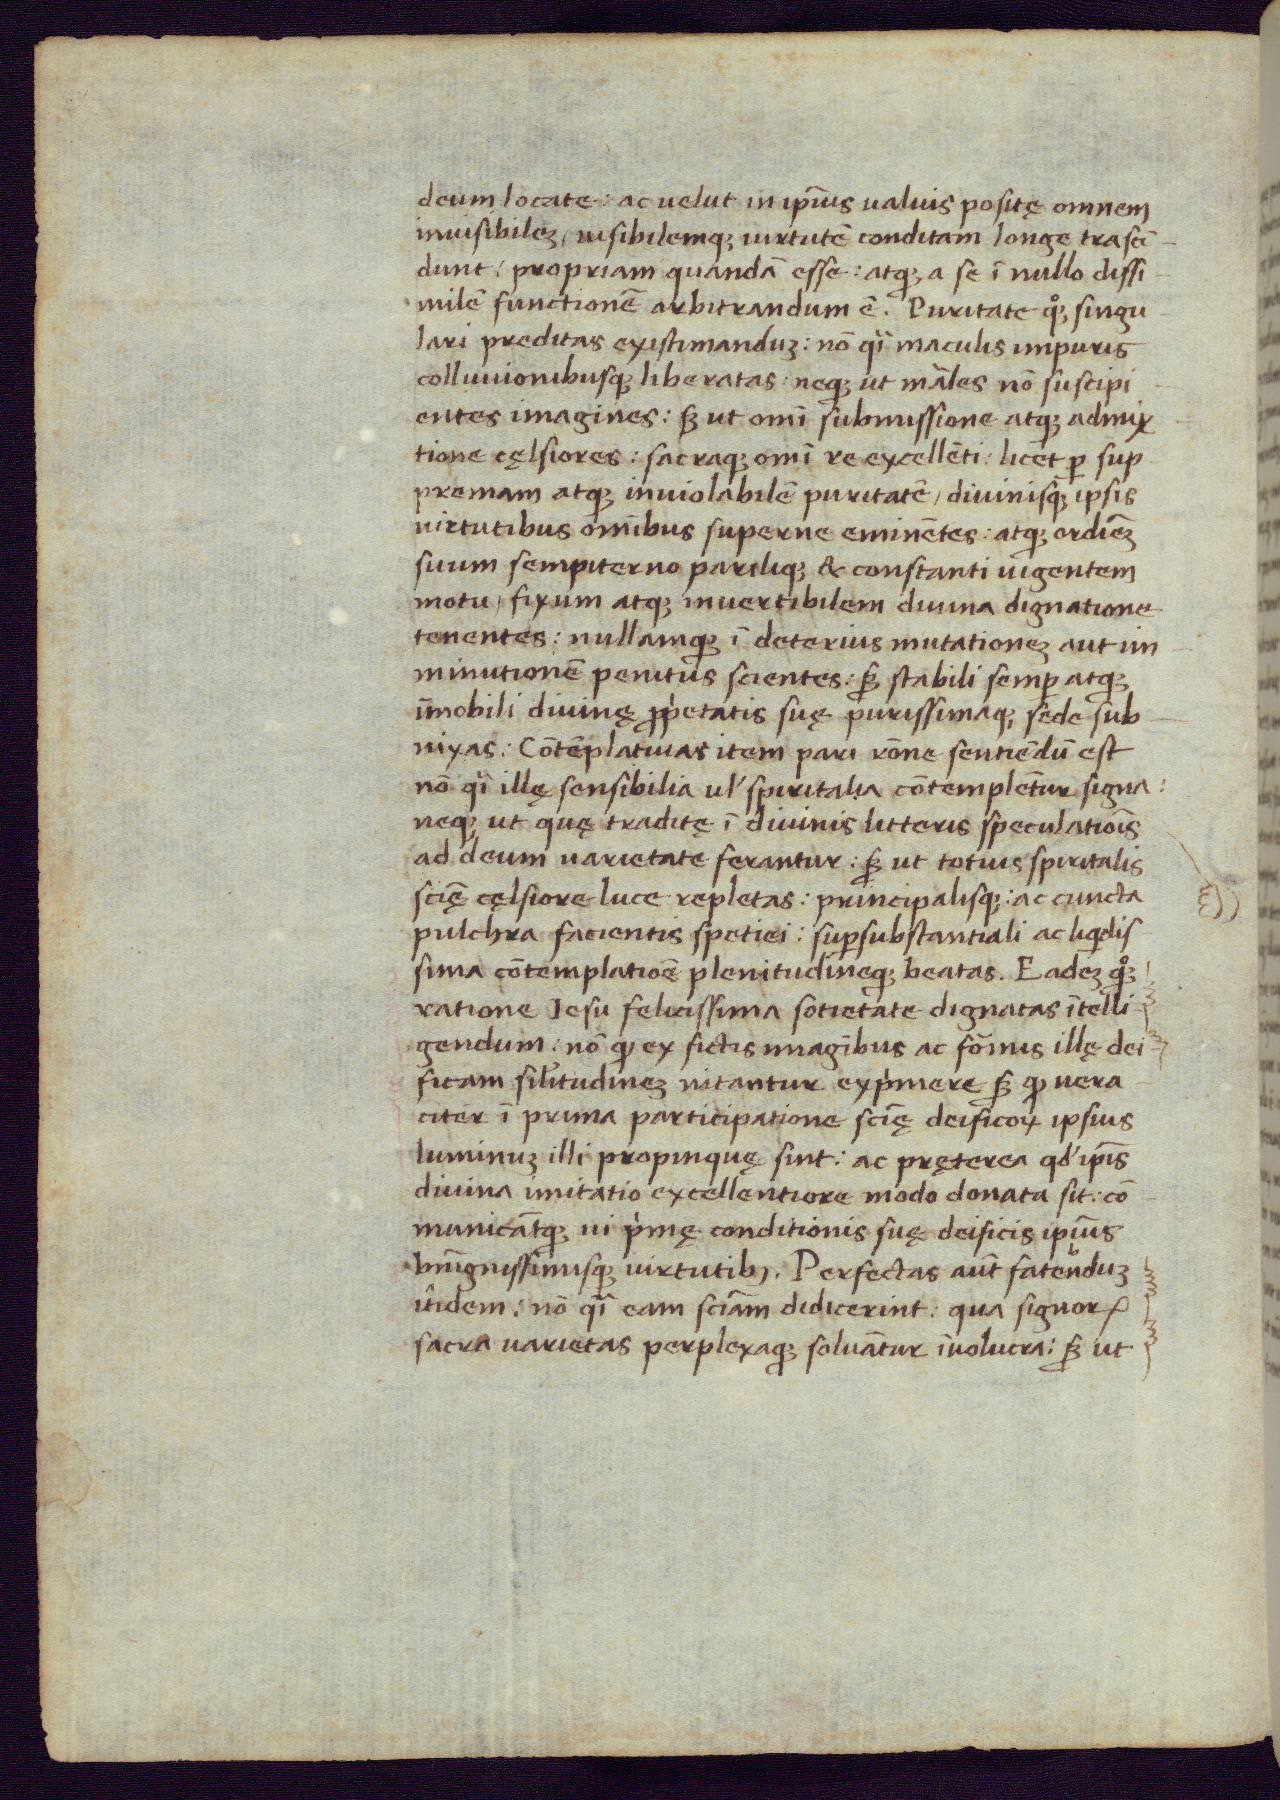 deum locate: ac uelut in ip̄ius ualuis positę omnem
inuisibileʒ, uisibilemqʒ uirtutē conditam longe trascē-
dunt: propriam quandā esse: atqʒ a se ī nullo dissi-
milē functionē arbitrandum ē. Puritate qͦʒ singu-
lari preditas existimanduʒ: nō qͥ maculis impuris
colluuionibusqʒ liberatas: neqʒ ut māles nō suscipi-
entes imagines: sʒ ut omī submissione atqʒ admix-
tione cęlsiores: sacraqʒ omī re excellēti: licēt ꝑ sup-
premam atqʒ inuiolabilē puritatē, diuinisqʒ ipsis
uirtutibus om̄ibus superne eminētes: atqʒ ordīeʒ
suum sempiterno pariliqʒ & constanti uigentem
motu, fixum atqʒ inuertibilem diuina dignatione
tenentes: nullamqʒ ī deterius mutationeʒ aut im-
minutionē penitus scientes: sʒ stabili semꝑ atqʒ
īmobili diuinę ꝓpͥetatis suę purissimaqʒ sede sub-
nixas: Cōtēplatiuas item pari rōne sentiēdū est
nō qͥ illę sensibilia ul' spiritalia cōtemplēt͛ur signa:
neqʒ ut quę traditę ī diuinis litteris speculatiōis
ad deum uarietate ferantur: sʒ ut totius spiritalis
scię̄ cęlsiore luce repletas: principalisqʒ: ac cuncta
pulchra facientis spetiei: suꝑsubstantiali ac liqͥdis-
sima cōtemplatiōe plenitudineqʒ beatas. Eadeʒ qͦʒ
ratione Iesu felicissima sotietate dignatas ītelli-
gendum: nō ꝙ ex fictis imagībus ac fōmis illę dei-
ficam sil'itudineʒ nitantur expͥmere sʒ ꝙ uera-
citer ī prima participatione scię̄ deificoꝝ ipsius
luminuʒ illi propinquę sint: ac pręterea qđ ip̄is
diuina imitatio excellentiore modo donata sit: cō-
municātqʒ ui pͥmę conditionis suę deificis ip̄ius
bn̄ignissimisqʒ uirtutibꝫ. Perfectas aūt fatēduʒ
itidem: nō qͥ eam sciām didicerint: qua signoꝝ
sacra uarietas perplexaqʒ soluātur īuolucra: sʒ ut